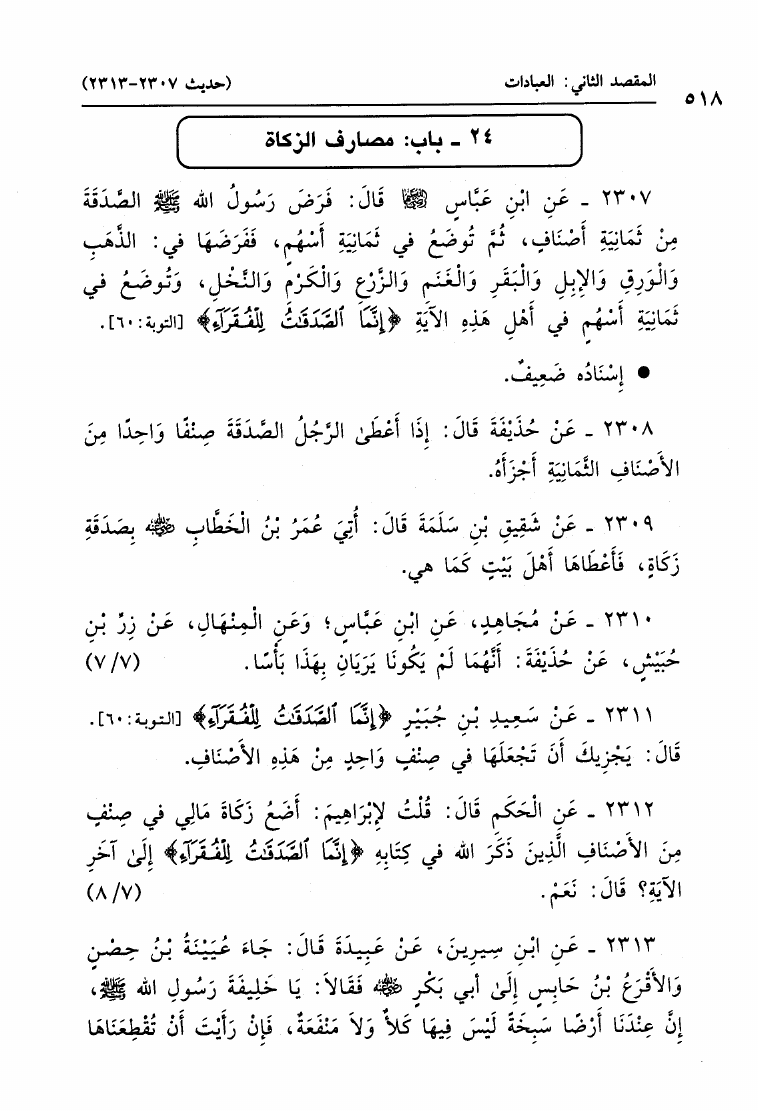 المقصد الثاني: العبادات (حديث ٢٣٠٧-٢٣١٣)
٥١٨
٢٤ ـ باب: مصارف الزكاة
٢٣٠٧ ـ عَنِ ابْنِ عَبَّاسٍ ﵄ قَالَ: فَرَضَ رَسُولُ الله ﷺ الصَّدَقَةَ
مِنْ ثَمَانِيَةِ أَصْنَافٍ، ثُمَّ تُوضَعُ في ثَمَانِيَةِ أَسْهُمٍ، فَفَرَضَهَا في: الذَّهَبِ
وَالْوَرِقِ وَالإِبِلِ وَالْبَقَرِ وَالْغَنَمِ وَالزَّرْعِ وَالْكَرْمِ وَالنَّخْلِ، وَتُوضَعُ في
ثَمَانِيَةِ أَسْهُمٍ في أَهْلِ هَذِهِ الآيَةِ ﴿إِنَّمَا ٱلصَّدَقَٰتُ لِلْفُقَرَآءِ﴾ [التوبة:٦٠].
● إِسْنَادُه ضَعِيفٌ.
٢٣٠٨ ـ عَنْ حُذَيْفَةَ قَالَ: إِذَا أَعْطَىٰ الرَّجُلُ الصَّدَقَةَ صِنْفًا وَاحِدًا مِنَ
الأَصْنَافِ الثَّمَانِيَةِ أَجْزَأَهُ.
٢٣٠٩ ـ عَنْ شَقِيقِ بْنِ سَلَمَةَ قَالَ: أُتِيَ عُمَرُ بْنُ الْخَطَّابِ ﵁ بِصَدَقَةِ
زَكَاةٍ، فَأَعْطَاهَا أَهْلَ بَيْتٍ كَمَا هي.
٢٣١٠ ـ عَنْ مُجَاهِدٍ، عَنِ ابْنِ عَبَّاسٍ؛ وَعَنِ الْمِنْهَالِ، عَنْ زِرِّ بْنِ
حُبَيْشٍ، عَنْ حُذَيْفَةَ: أَنَّهُمَا لَمْ يَكُونَا يَرَيَانِ بِهَذَا بَأْسًا. (٧/٧)
٢٣١١ ـ عَنْ سَعِيدِ بْنِ جُبَيْرٍ ﴿إِنَّمَا ٱلصَّدَقَٰتُ لِلْفُقَرَآءِ﴾ [التوبة:٦٠].
قَالَ: يَجْزِيكَ أَنَ تَجْعَلَهَا في صِنْفٍ وَاحِدٍ مِنْ هَذِهِ الأَصْنَافِ.
٢٣١٢ ـ عَنِ الْحَكَمِ قَالَ: قُلْتُ لإِبْرَاهِيمَ: أَضَعُ زَكَاةَ مَالِي في صِنْفٍ
مِنَ الأَصْنَافِ الَّذِينَ ذَكَرَ الله في كِتَابِهِ ﴿إِنَّمَا ٱلصَّدَقَٰتُ لِلْفُقَرَآءِ﴾ إِلَىٰ آخَرِ
الآيَةِ؟ قَالَ: نَعَمْ. (٨/٧)
٢٣١٣ ـ عَنِ ابْنِ سِيرِينَ، عَنْ عَبِيدَةَ قَالَ: جَاءَ عُيَيْنَةُ بْنُ حِصْنٍ
وَالأَقْرَعُ بْنُ حَابِسٍ إِلَىٰ أَبي بَكْرٍ ﵁ فَقَالاَ: يَا خَلِيفَةَ رَسُولِ الله ﷺ،
إِنَّ عِنْدَنَا أَرْضًا سَبِخَةً لَيْسَ فِيهَا كَلأٌ وَلاَ مَنْفَعَةٌ، فَإِنْ رَأَيْتَ أَنْ تُقْطِعَنَاهَا